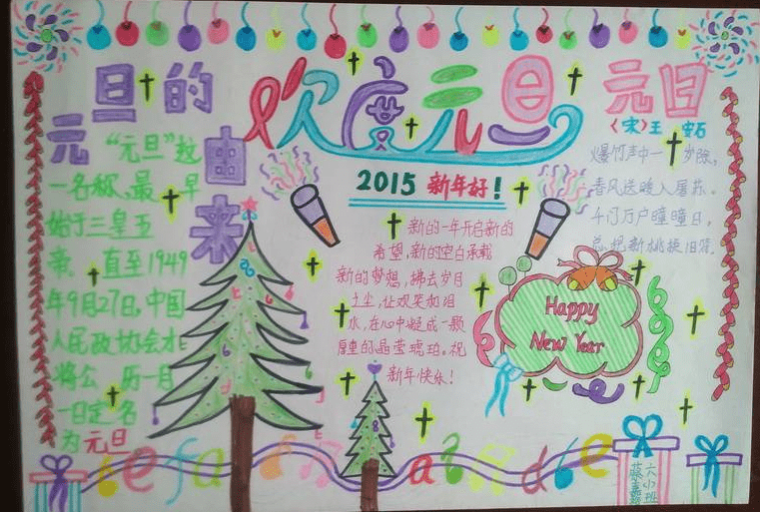 欢度元旦
元旦的
由来
"元旦"这
一名称,最早
始于三皇五
帝。直至1949
年9月27日,中国
人民政协会才
将公历一月
一日定名
为元旦
2015 新年好!
新的一年开启新的
希望,新的空白承载
新的梦想,拂去岁月
土尘,让欢笑和泪
水,在心中凝成一颗
厚重的晶莹琥珀。祝
新年快乐!
元日
(宋)王安石
爆竹声中一岁除,
春风送暖入屠苏。
千门万户曈曈日,
总把新桃换旧符。
Happy
New Year
六(1)班